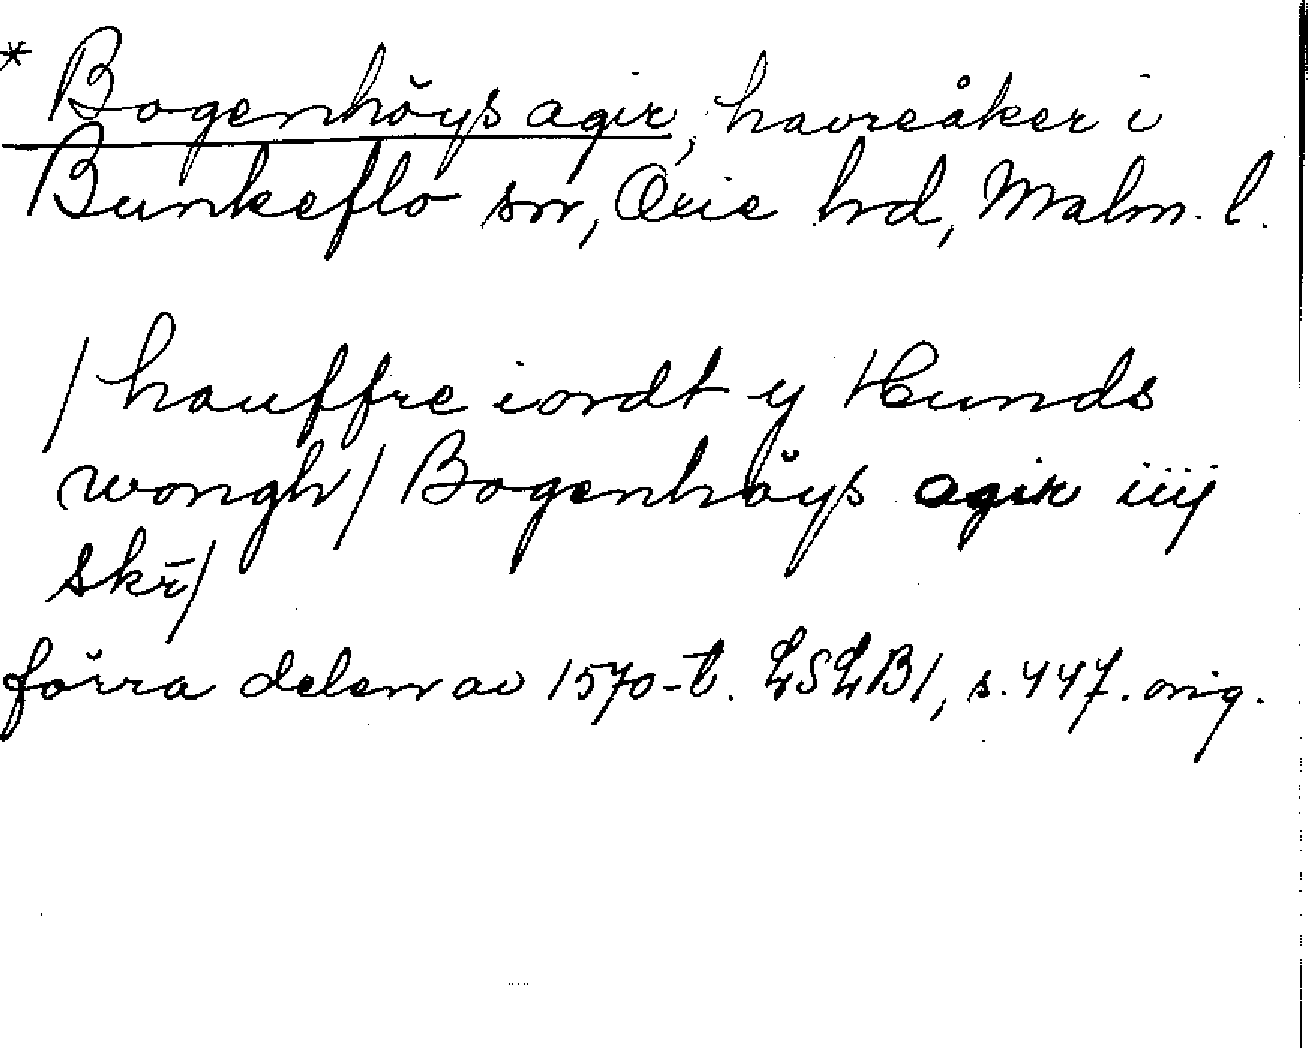 * Bogenhöys agir, havreåker i
Bunkeflo sn, Oxie hd, Malm. l.
/ hauffre iordt y Hunds
wongh/ Bogenhöys agir iiij
skr̄/
förra delen av 1570-t. LSLB1, s. 447. orig.